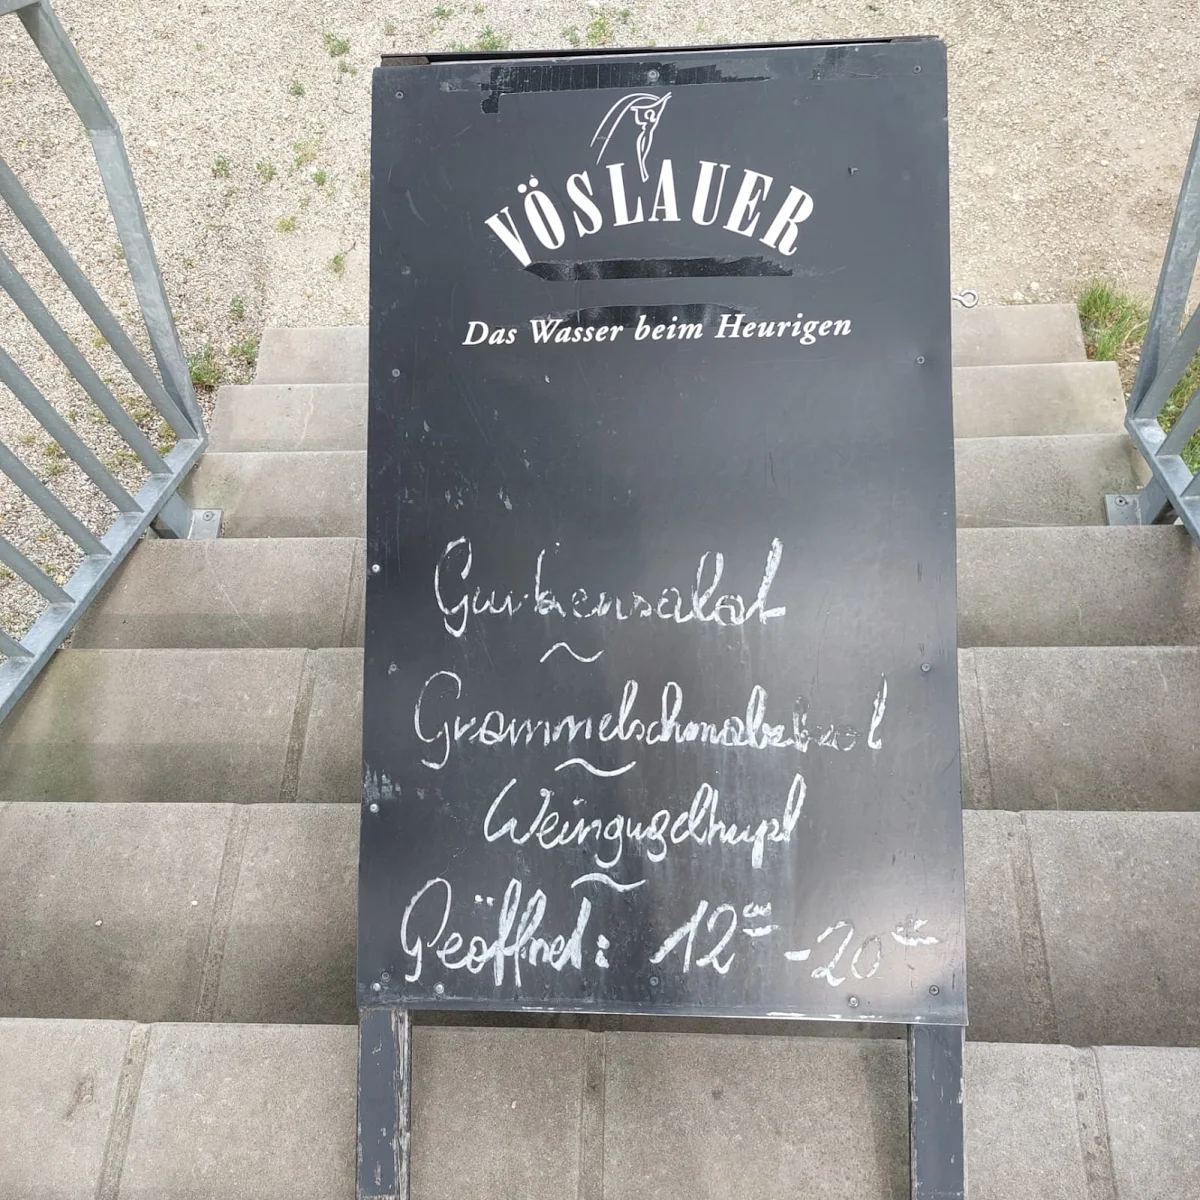 VÖSLAUER
Das Wasser beim Heurigen
Gurkensalat
~
Grammelschmalzbrot
~
Weingugelhupf
~
Geöffnet: 12⁰⁰ - 20⁰⁰